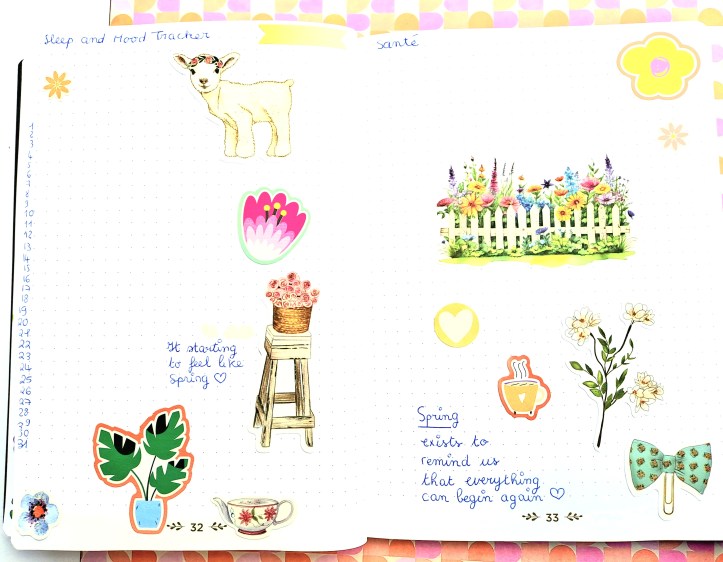 Sleep and Mood Tracker
1
2
3
4
5
6
7
8
9
10
11
12
13
14
15
16
17
18
19
20
21
22
23
24
25
26
27
28
29
30
31
It starting
to feel like
Spring ♡
32
Santé
Spring
exists to
remind us
that everything
can begin again ♡
33